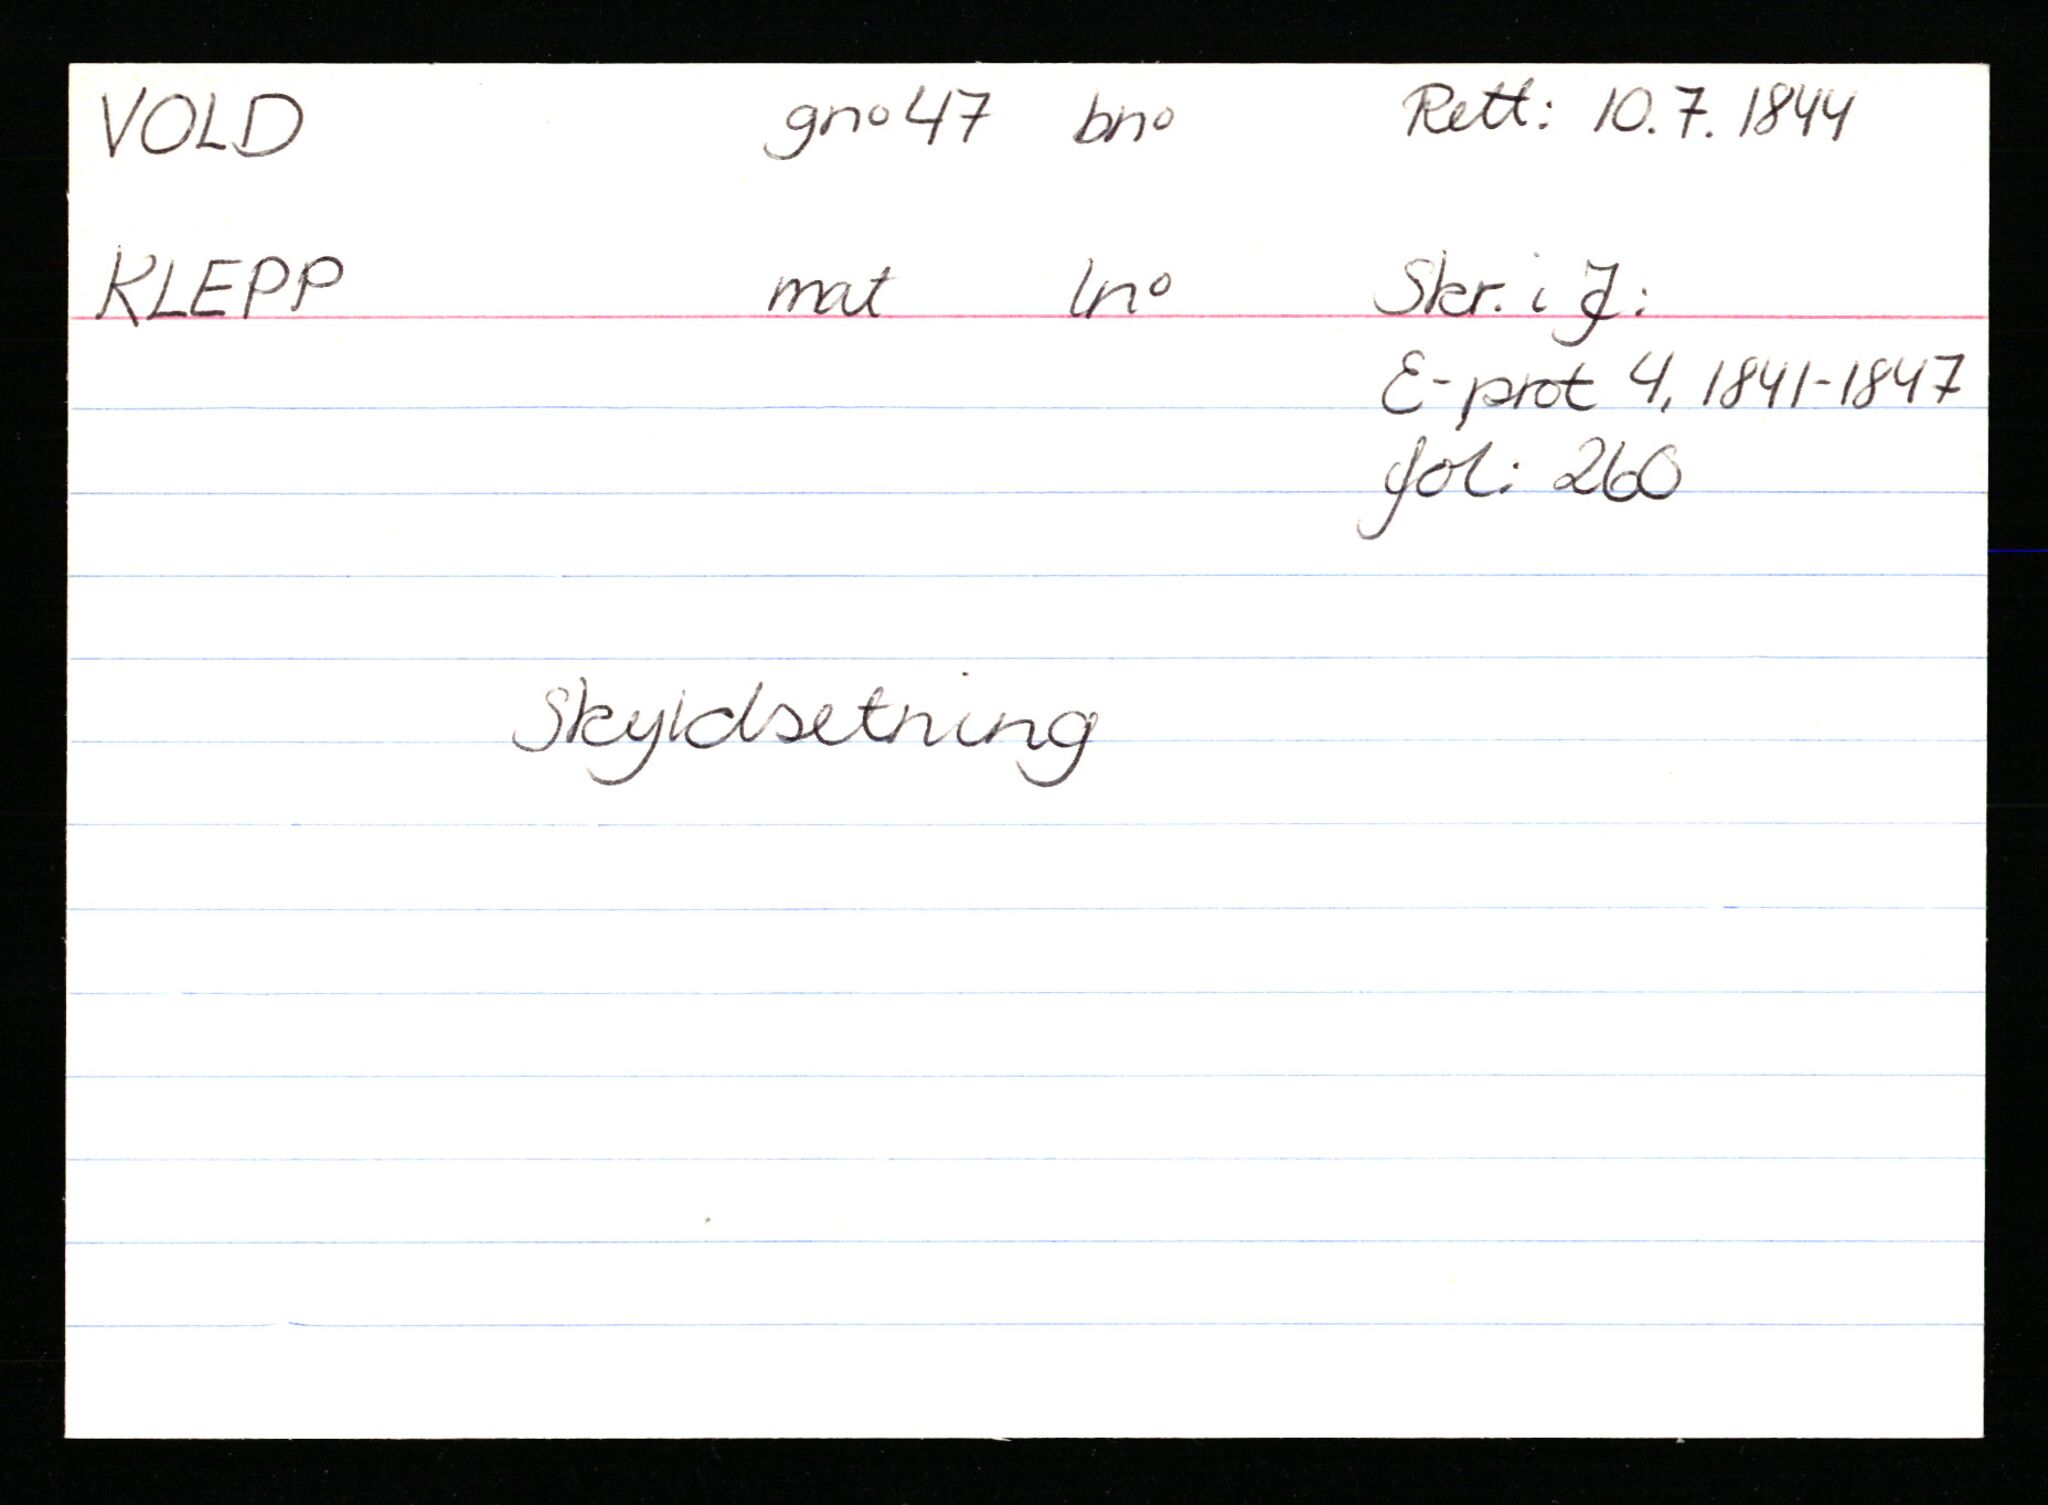 VOLD gno 47 bno Rett: 10.7.1844
KLEPP mat lno Skr. i J:
E-prot 4, 1841-1847
fol: 260
Skyldsetning